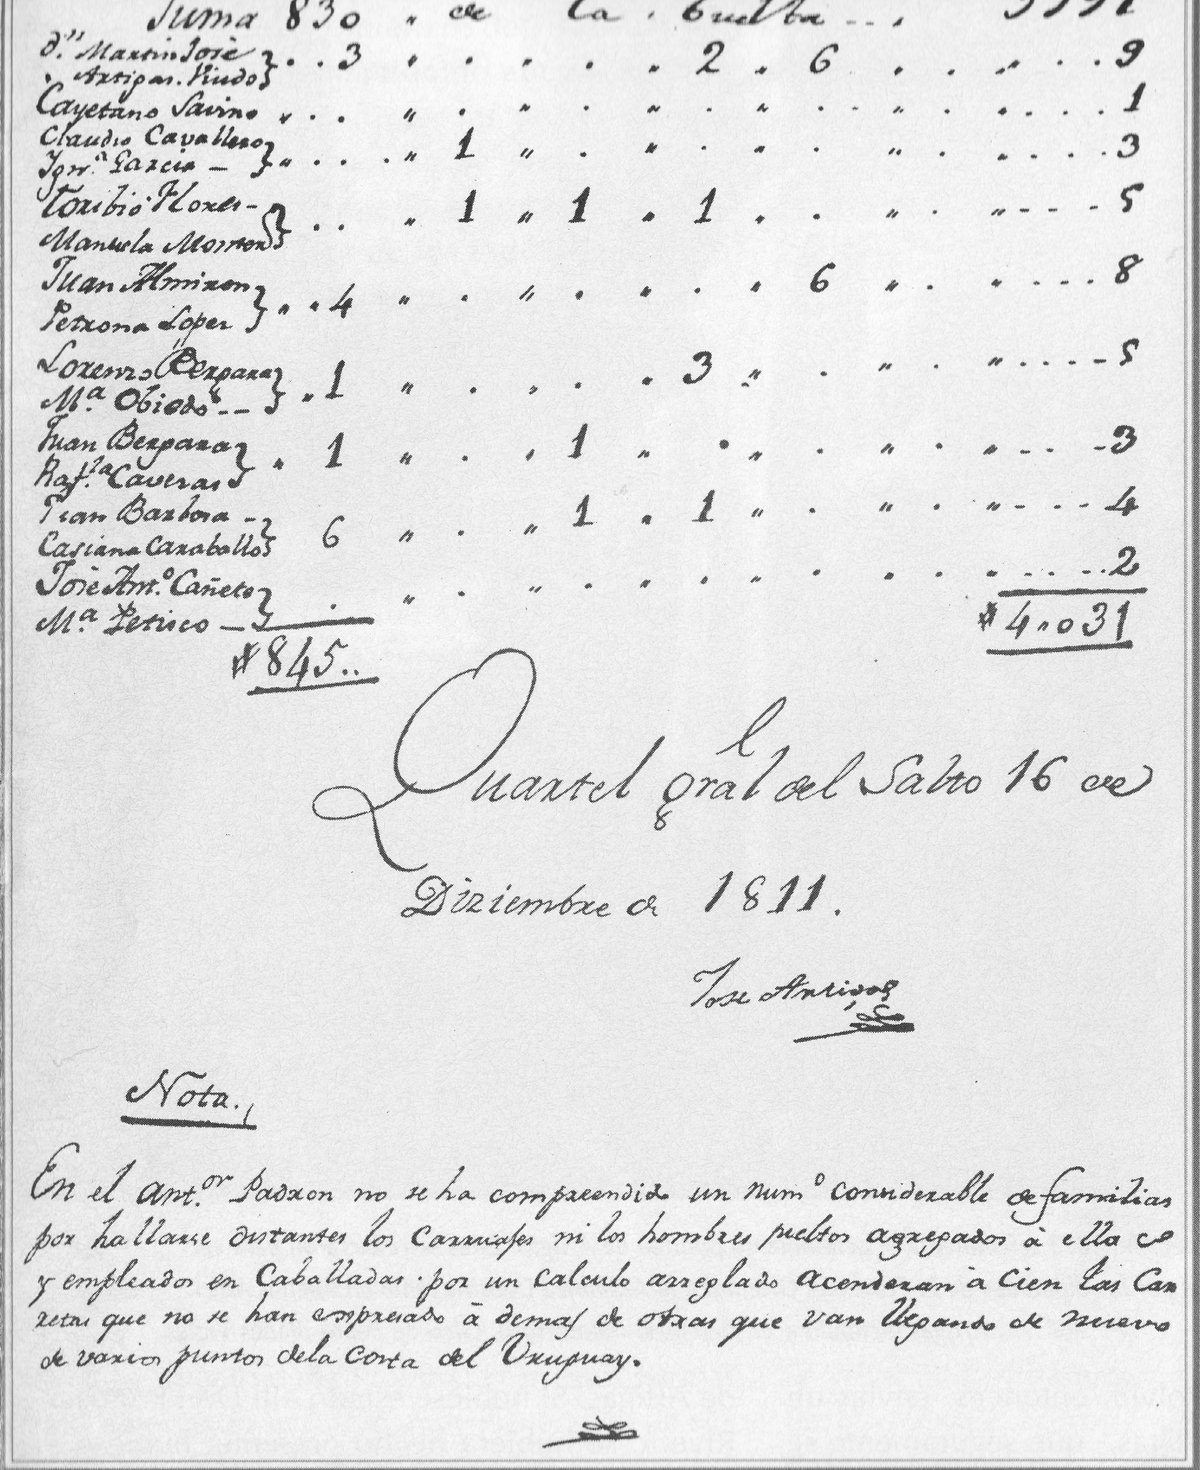 Suma 830 " de la buelta - - .
d.n Martin José } . . 3 " . " . " 2 " 6 " . " . . 9
" Artigas. Viudo
Cayetano Savino " . . " . " . " . " . " . " . . . . 1
Claudio Cavallero } " . . . " 1 " . " . " . " . " . . . . 3
Ign.a Garcia -
Toribio Flores - } . . " 1 " 1 " 1 " . " . " - - - 5
Manuela Morron
Juan Almiron } " " 4 " . " . " . " 6 " . " . . . . 8
Petrona Loper
Lorenzo Bergara } " 1 " . " . " 3 " . " . " . . . . - 5
M.a Obiedo - -
Juan Bergara } " 1 " . " 1 " . " . " . " - . . - 3
Raf.la Caveras
Juan Barbosa - } 6 " . " 1 " 1 " . " . " - . . - 4
Casiana Caraballo
José Ant.o Cañete } . " . " . " . " . " . " . . . . 2
M.a Petisco -
$ 845.. $ 4,,031
Quartel gral del Salto 16 de
Diziembre de 1811.
Jose Artigas
Nota.
En el ant.or Padron no se ha compreendido un num.o considerable de familias
por hallarse distantes los Carruajes ni los hombres sueltos agregados à ella
y empleados en Caballadas. por un calculo arreglado acenderan à Cien las Car
retas que no se han expresado à demas de otras que van llegando de nuevo
de varios puntos dela Costa del Uruguay.